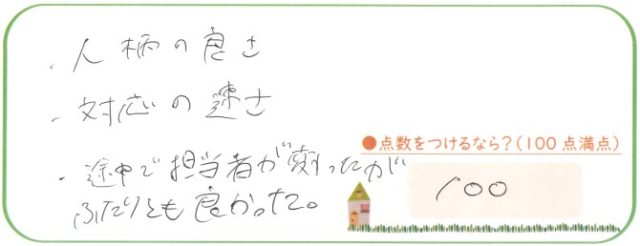 ・人柄の良さ
・対応の速さ
・途中で担当者が変ったが
ふたりとも良かった。
●点数をつけるなら?(100点満点)
100